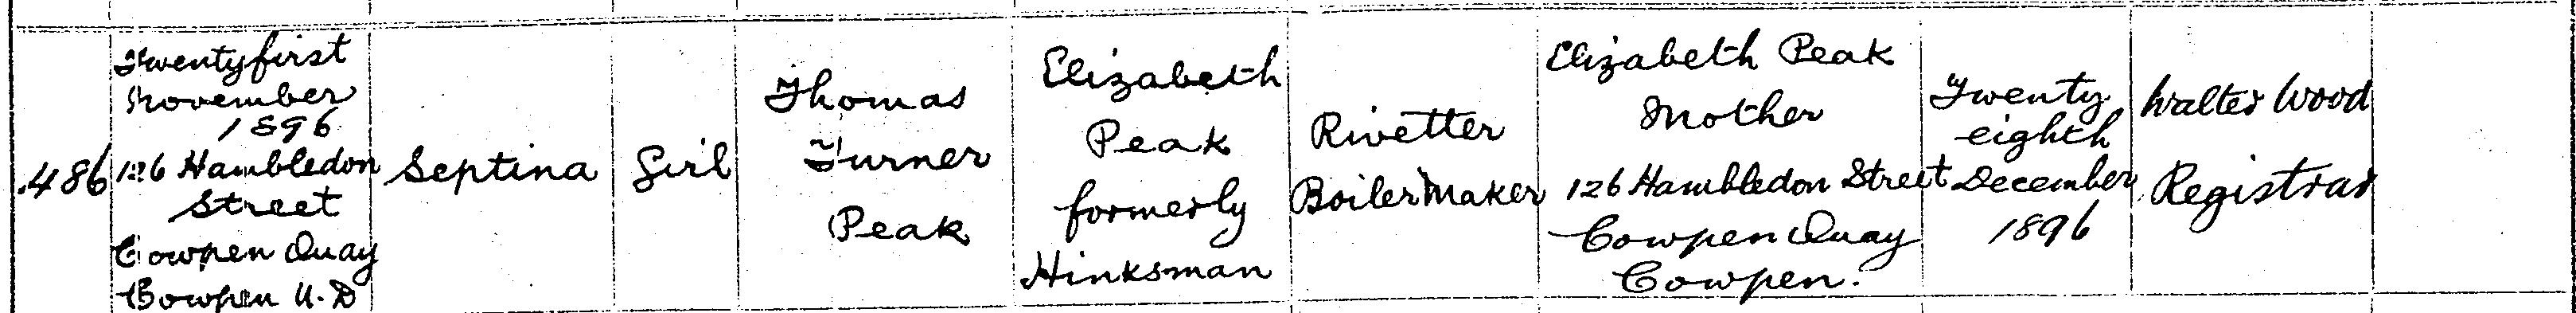 486
Twentyfirst
November
1896
126 Hambledon
Street
Cowpen Quay
Cowpen U.D
Septina
Girl
Thomas
Turner
Peak
Elizabeth
Peak
formerly
Hinksman
Rivetter
Boiler Maker
Elizabeth Peak
Mother
126 Hambledon Street
Cowpen Quay
Cowpen.
Twenty
eighth
December
1896
Walter Wood
Registrar